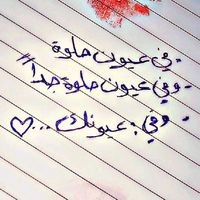 . في عيون حلوة
. وفي عيون حلوة جداً
. وفي : عيونك ... ♡